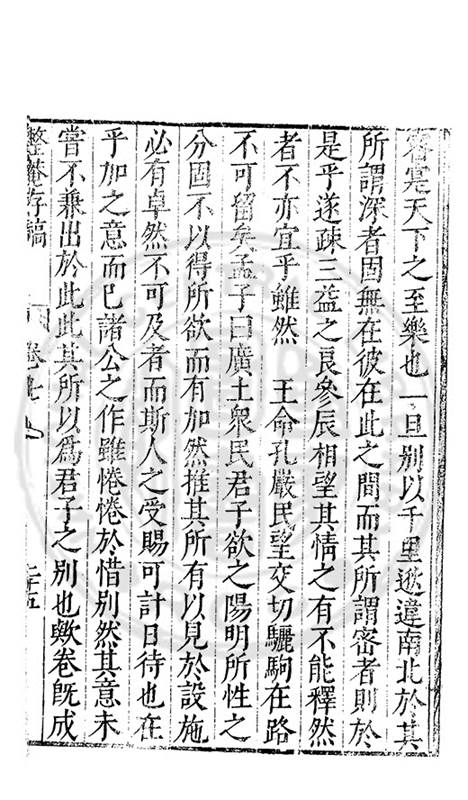 寔天下之至樂也一旦別以千里逖違南北於其
所謂深者固無在彼在此之間而其所謂密者則於
是乎遂疎三益之良參辰相望其情之有不能釋然
者不亦宜乎雖然　王命孔嚴民望交切驪駒在路
不可留矣孟子曰廣土衆民君子欲之陽明所性之
分固不以得所欲而有加然推其所有以見於設施
必有卓然不可及者而斯人之受賜可計日待也在
乎加之意而已諸公之作雖惓惓於惜別然其意未
嘗不兼出於此此其所以爲君子之別也歟卷旣成
整菴存稿　卷七　二十五